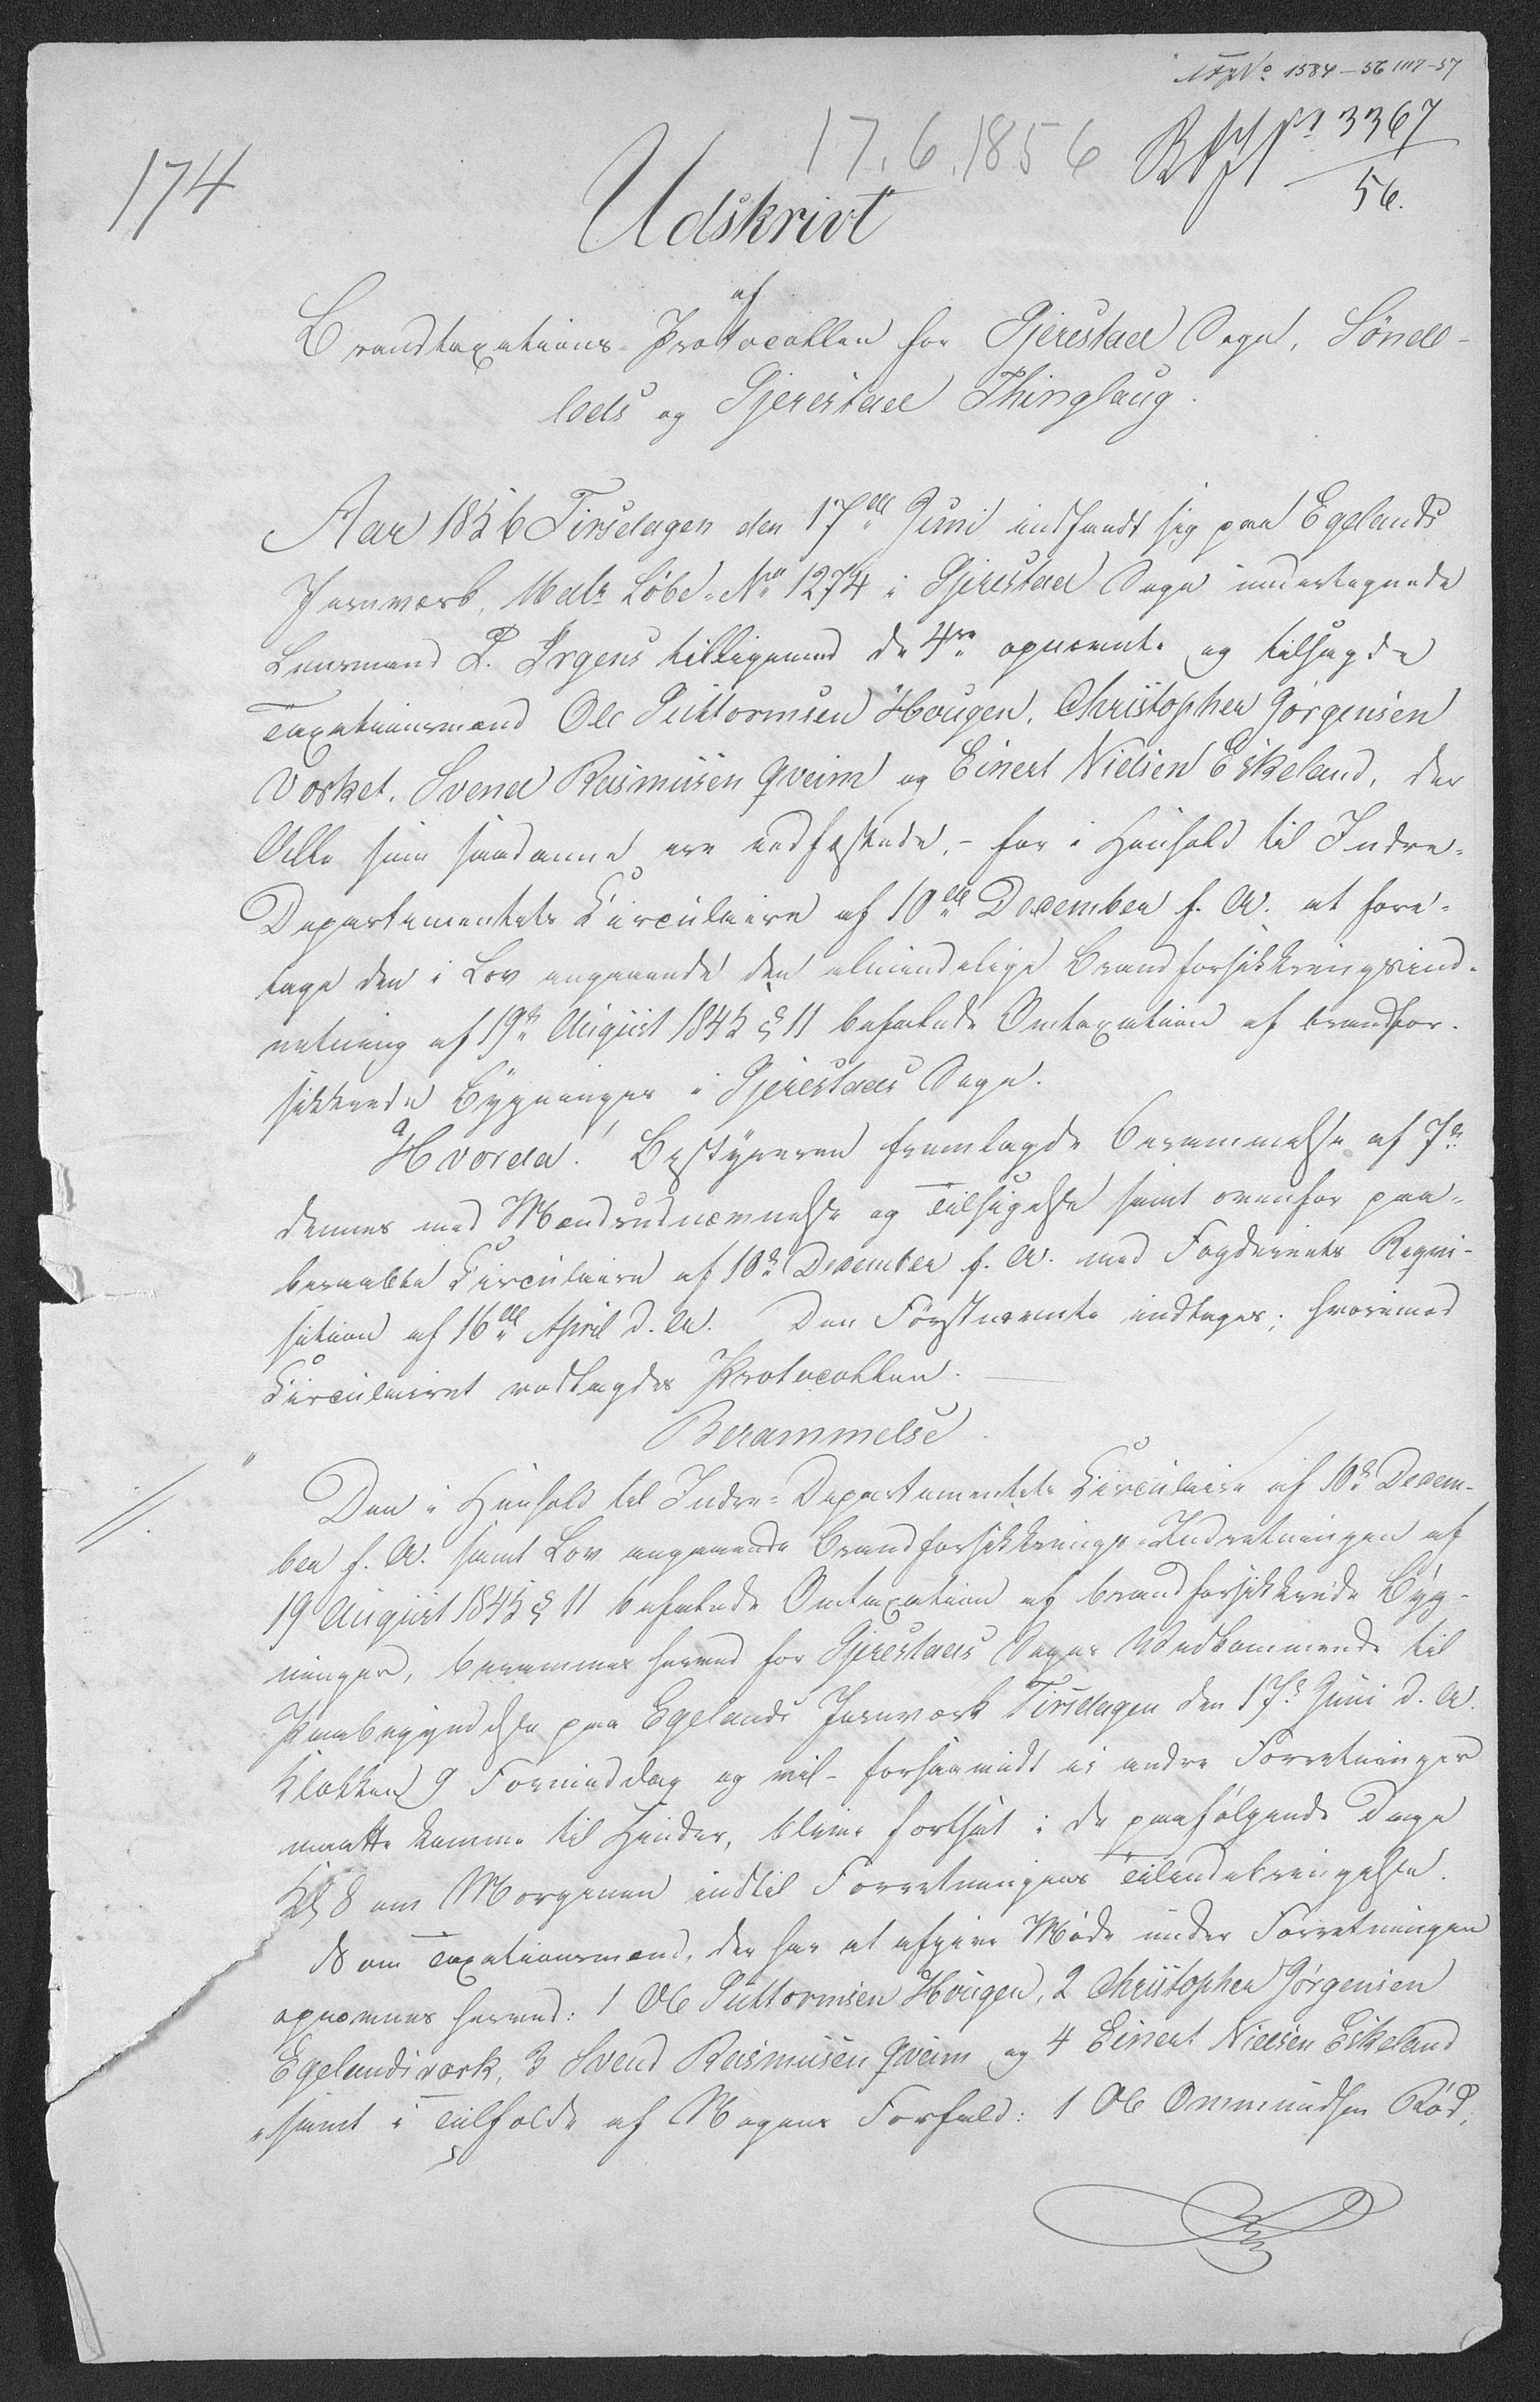 No 1584-56 1117-57
17.6.1856 No 3367
56.
174
Udskrivt
af
Brandtaxations-Protocollen for Gjerestad Sogn, Sönde-
leds og Gjerestad Thinglaug.
Aar 1856 Tirsdagen den 17de Juni indfandt sig paa Egelands
Jernværk, Matr. Løbe-No 1274 i Gjerestad Sogn undertegnede
Lensmand P. Irgens tilligemed de 4re opnævnte og tilsagde
Taxationsmænd Ole Guttormsen Hougen, Christopher Jørgensen
Værket, Svend Rasmusen Qveim og Einert Nielsen Eskeland, der
Alle som saadanne ere edfæstede, - for i Henhold til Indre-
Departementets Circulaire af 10de December f. A. at fore-
tage den i Lov angaaende den almindelige Brandforsikkringsind-
retning af 19de August 1845 § 11 befalede Omtaxation af brandfor-
sikkrede Bygninger i Gjerestads Sogn.
Hvorda! Bestyreren fremlagde Berammelse af 7de
dennes med Mændsudnævnelse og Tilsigelse samt ovenfor paa-
beraabte Circulaire af 10de December f. A. med Fogderiets Reqvi-
sition af 16de April d. A. Den Førstnævnte indtages; hvorimod
Circulairet vedlagdes Protocollen.
Berammelse.
"Den i Henhold til Indre-Departementets Circulaire af 10de Decem-
ber f. A. samt Lov angaaende Brandforsikkrings-Indretningen af
19 August 1845 § 11 befalede Omtaxation af brandforsikkrede Byg-
ninger, berammes herved for Gjerestads Sogns Vedkommende til
Paabegyndelse paa Egelands Jernværk Tirsdagen den 17de Juni d. A.
Klokken 9 Formiddag og vil - forsaavidt ei andre Forretninger
maatte komme til Hinder, blive fortsat i de paafølgende Dage
Kl 8 om Morgenen indtil Forretningens Tilendebringelse.
Som Taxationsmænd, der har at afgive Møde under Forretningen
opnævnes herved: 1 Ole Guttormsen Hougen, 2 Christopher Jørgensen
Egelandsværk, 3 Svend Rasmusen Qveim og 4 Einert Nielsen Eskeland
"samt i Tilfælde af Nogens Forfald: 1 Ole Ommundsen Rød,